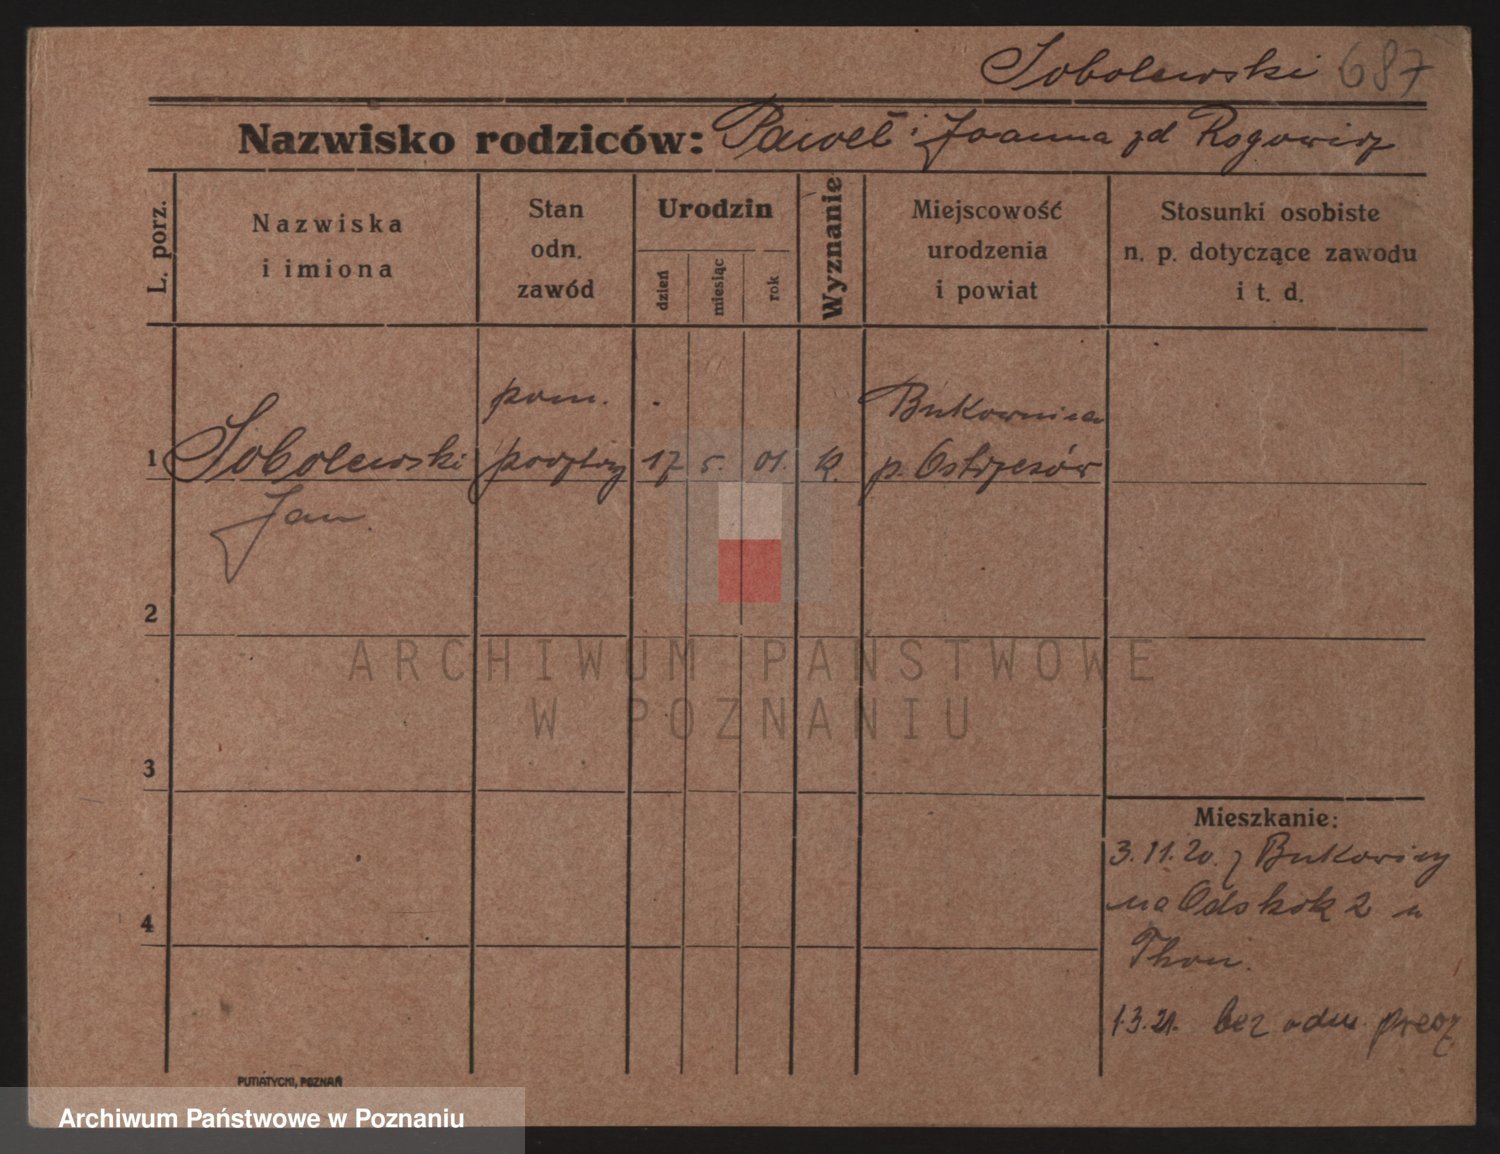 Sobolewski 687
Nazwisko rodziców: Paweł i Joanna zd Rogowicz
L. porz.
Nazwiska
i imiona
Stan
odn.
zawód
Urodzin
dzień
miesiąc
rok
Wyznanie
Miejscowość
urodzenia
i powiat
Stosunki osobiste
n. p. dotyczące zawodu
i t. d.
pom.
Bukownica
1 Sobolewski 17 5. 01. K. p. Ostrzeszów
Jan
2
3
4
Mieszkanie:
3.11.20. z Bukowicy
na Odskok 2 u
Thon.
1.3.21. bez odm. precz
PUTIATYCKI, POZNAŃ
ARCHIWUM PAŃSTWOWE
W POZNANIU
Archiwum Państwowe w Poznaniu